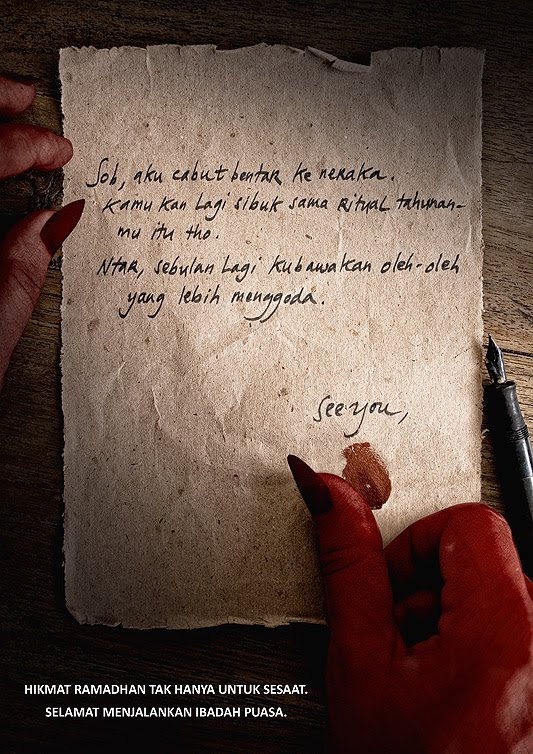 Sob, aku cabut bentar ke neraka.
Kamu kan lagi sibuk sama ritual tahunan-
mu itu tho.
Ntar, sebulan lagi kubawakan oleh-oleh
yang lebih menggoda.
See you,
HIKMAT RAMADHAN TAK HANYA UNTUK SESAAT.
SELAMAT MENJALANKAN IBADAH PUASA.